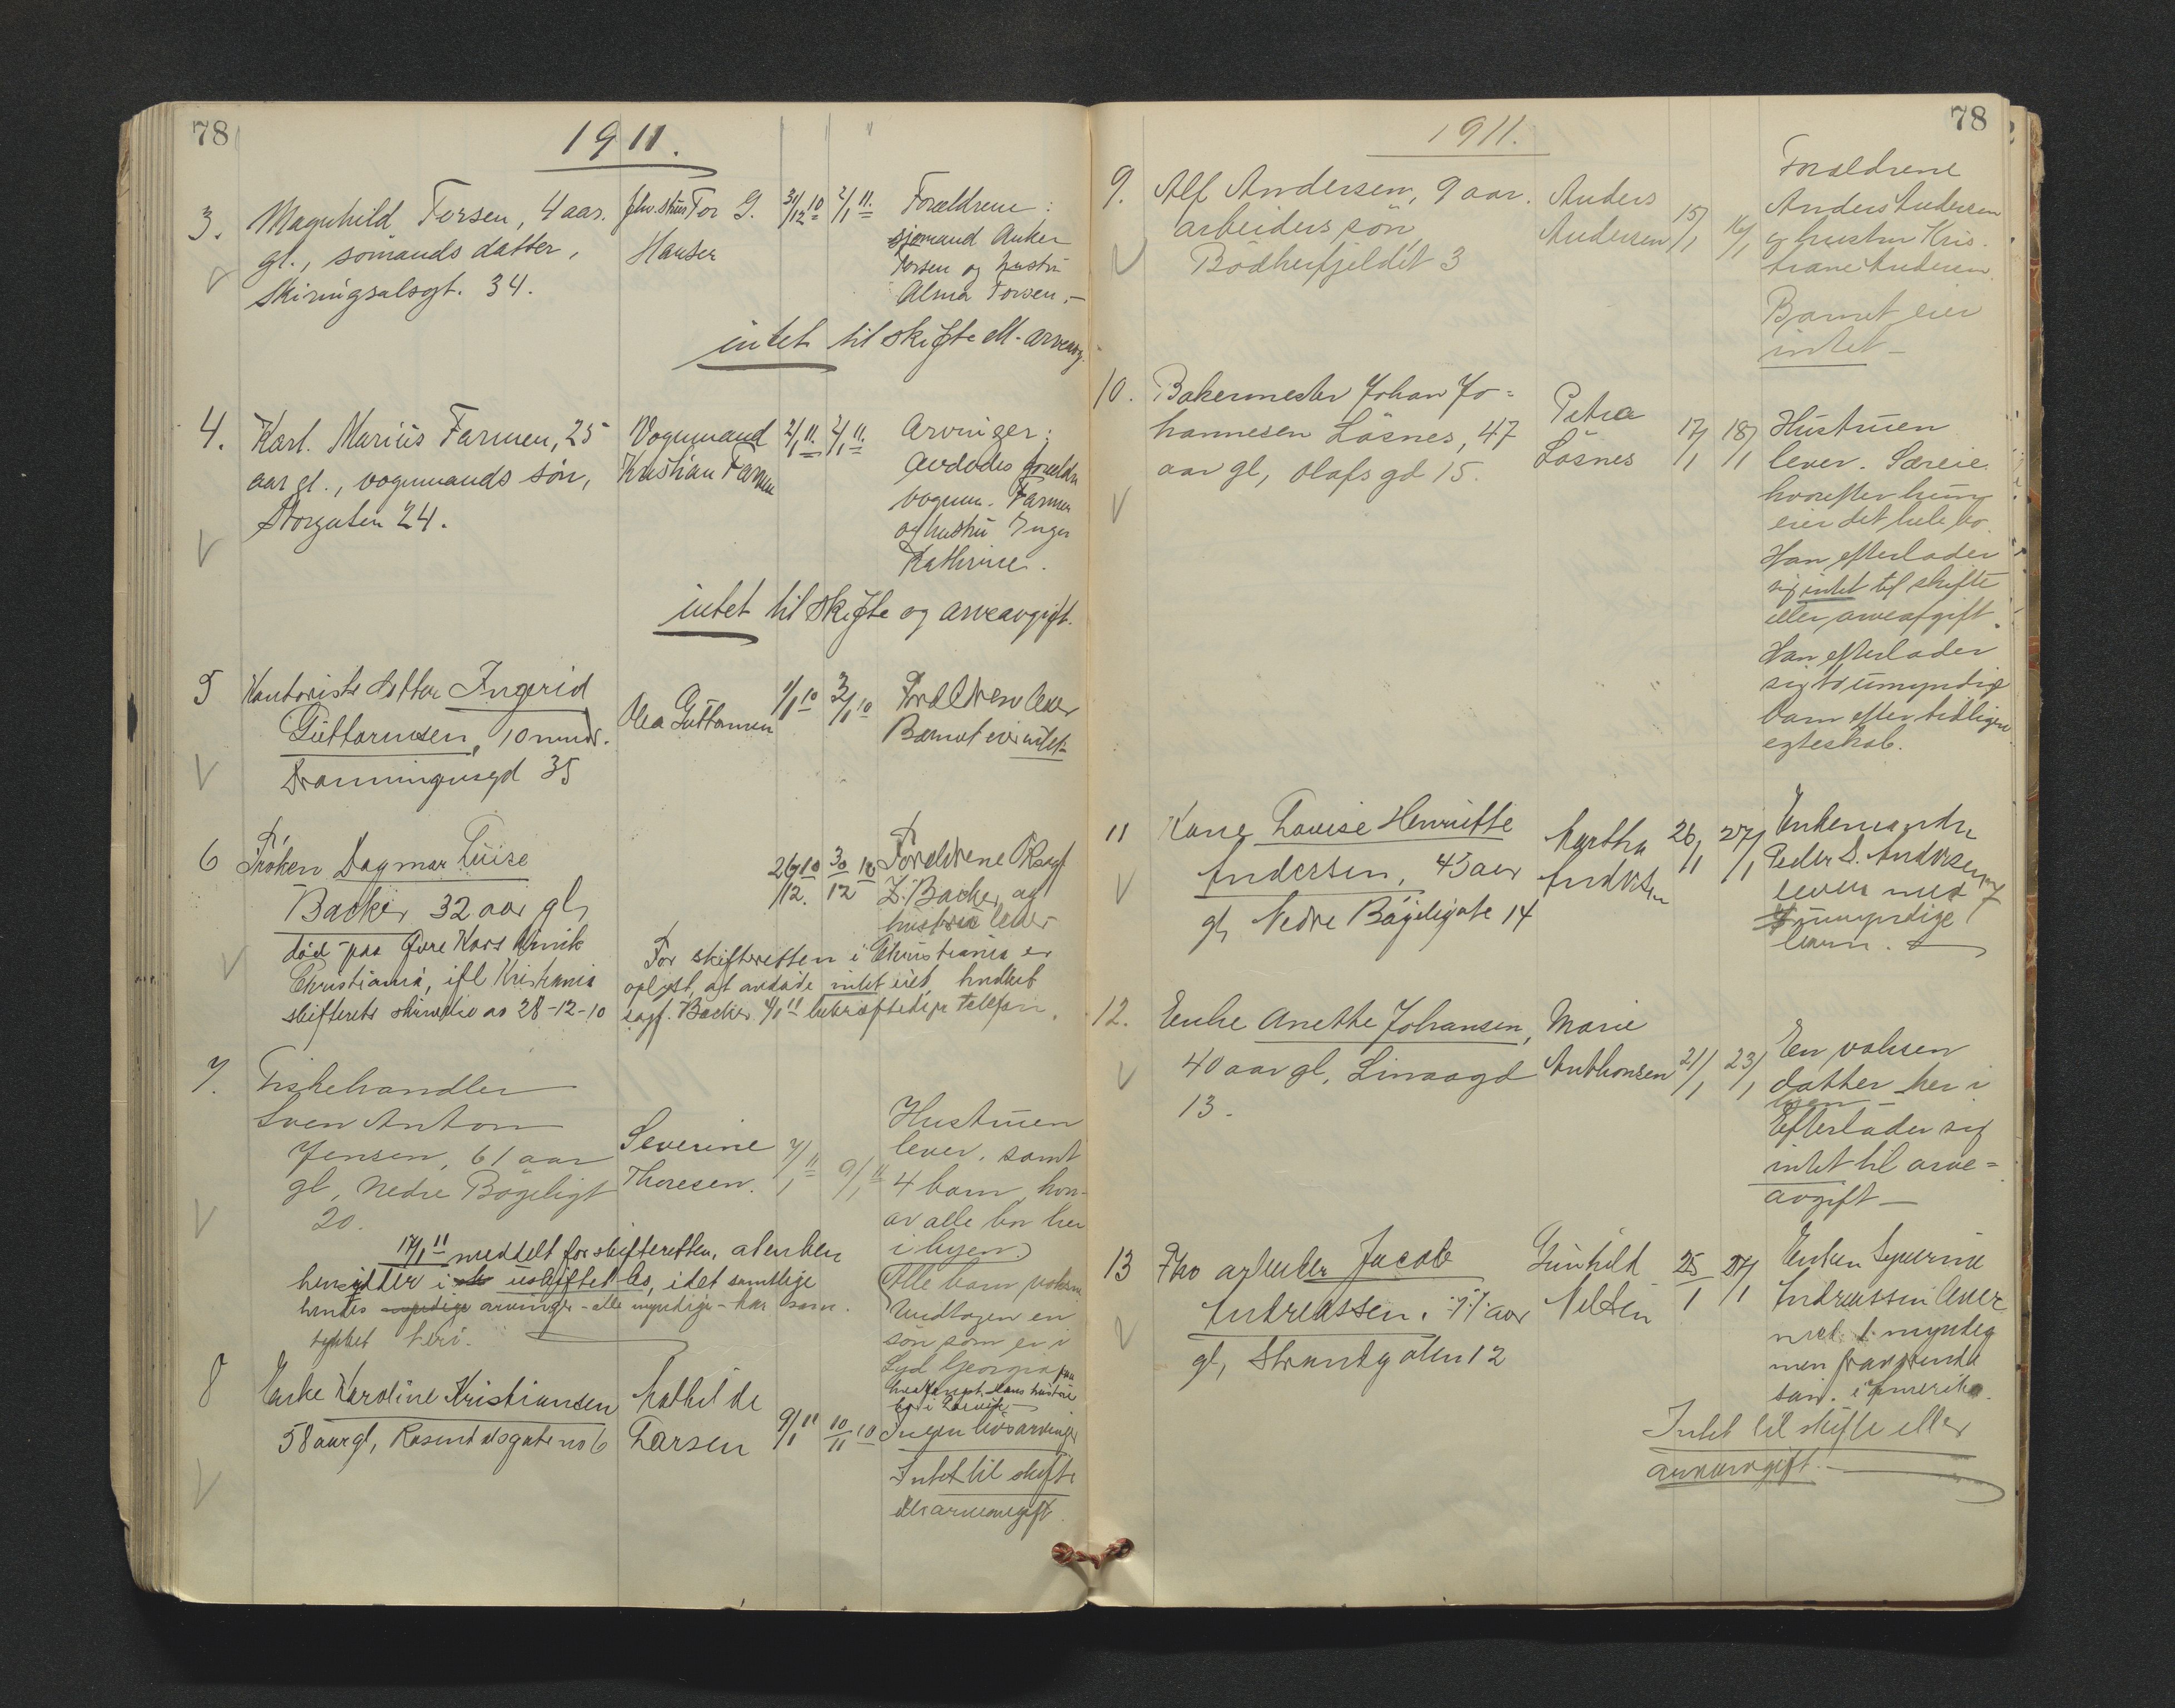 78
1911.
3. Magnhild Torsen, 4 aar.
gl., sömands datter,
Skiringsalsgt. 34.
Tor G.
Hansen
31/12 10
2/1 11.
Forældrene:
sjömand Anker
Torsen og hustru
Alma Torsen.-
intet til skifte ell. arveavg.
4. Karl Marius Farmen, 25
aar gl., vognmands sön,
Storgaten 24.
Vognmand
Kristian Farmen
2/1 11.
2/1 11.
Arvinger:
Avdödes foreldre
vognm. Farmen
og hustru Inger
Kathrine.
intet til skifte og arveavgift.
5 Kontorists datter Ingerid
Guttormsen, 10 mndr.
Dronningensgd 35
Olea Guttormsen
1/1 10
3/1 10
Foreldrene lever
Barnet eier intet
6 Fröken Dagmar Luise
Backer 32 aar gl,
död paa Övre Kors klinik
Christiania, ifl Kristiania
skifterets skrivelse av 28-12-10
26/12 10
30/12 10
Foreldrene
Backer og
hustru lever
For skifteretten i Christiania er
oplyst, at avdöde intet eiet, hvilket
sagf. Backer 4/1 11 bekræftet pr telefon.
7. Fiskehandler
Sven Anton
Jensen, 61 aar
gl, Nedre Bögeligt
20.
Severine
Thoresen.
7/1 11
9/1 11
Hustruen
lever, samt
4 barn, hvor-
av alle bor her
i byen.)
Alle barn voksne
Undtagen en
sön som er i
Syd Georgia paa
hvalfangst. Hans hustru
bor i Larvik
17/1 11 meddelt for skifteretten, at enken
hensitter i uskiftet bo, idet samtlige
hendes arvinger - alle myndige - har sam-
tykket heri.
8 Enke Karoline Kristiansen
58 aar gl, Rosendalsgate no 6
Mathilde
Larsen
9/1 11
10/11 10
Ingen livsarvinger
Intet til skifte
ell arveavgift.
78
1911.
9. Alf Andersen, 9 aar.
arbeiders sön
Bödkerfjeldet 3
Anders
Andersen
15/1
16/1
Forældrene
Anders Andersen
og hustru Kris-
tiane Andersen.
Barnet eier
intet -
10. Bakermester Johan Jo=
hannesen Låsnes, 47
aar gl, Olafs gd 15.
Petra
Låsnes
17/1
18/1
Hustruen
lever. Særeie
hvorefter hun
eier det hele bo.
Han efterlader
sig intet til skifte
eller arveafgift.
Han efterlader
sig to umyndige
barn efter tidligere
egteskab.
11 Kone Lovise Henriette
Andersen, 43 aar
gl, Nedre Bögeligate 14
Martha
Andersen
26/1
27/1
Enkemanden
Peder S. Andersen
lever med 7
umyndige
barn.
12. Enke Anethe Johansen,
40 aar gl, Linaagd
13.
Marie
Anthonsen
21/1
23/1
En voksen
datter her i
byen -
Efterlader sig
intet til arve=
avgift -
13 Fhv arbeider Jacob
Andreassen, 77 aar
gl, Strandgaten 12
Gunhild
Nelsen
25/1
27/1
Enken Severine
Andreassen lever
med 1 myndig
men fraværende
sön. i Amerika.
Intet til skifte eller
arveavgift. -